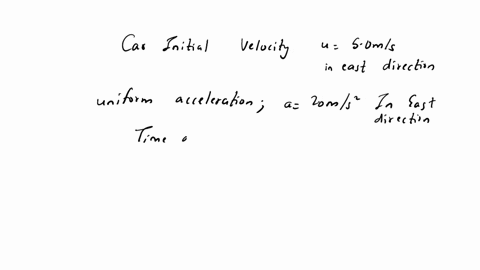 Car Initial Velocity u= 5.0m/s
in east direction
uniform acceleration; a= 20m/s² In East
direction
Time